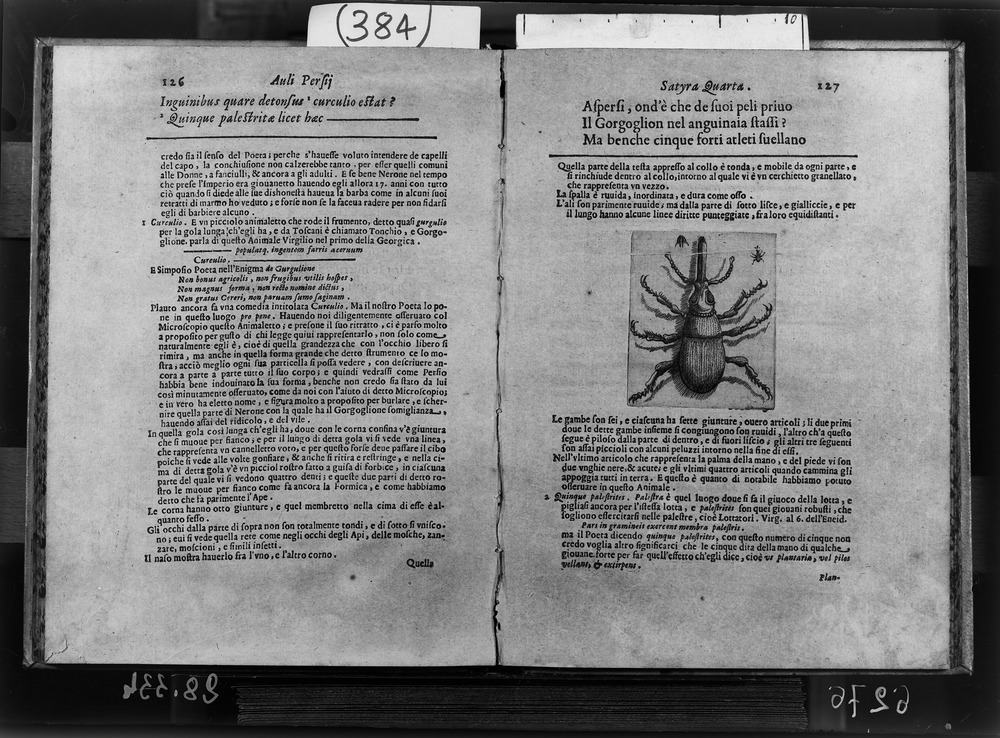 (384)
10
126
Auli Persij
Inguinibus quare detonsus ¹ curculio estat ?
² Quinque palestritæ licet hæc
credo sia il senso del Poeta; perche s'hauesse voluto intendere de capelli
del capo, la conchiusione non calzerebbe tanto, per esser quelli comuni
alle Donne, a fanciulli, & ancora a gli adulti. E se bene Nerone nel tempo
che prese l'Imperio era giouanetto hauendo egli allora 17. anni con tutto
ciò quando si diede alle sue dishonestà haueua la barba come in alcuni suoi
retratti di marmo ho veduto; e forse non se la faceua radere per non fidarsi
egli di barbiere alcuno .
1 Curculio . E vn picciolo animaletto che rode il frumento, detto quasi gurgulio
per la gola lunga ch'egli ha, e da Toscani è chiamato Tonchio, e Gorgo-
glione. parla di questo Animale Virgilio nel primo della Georgica .
populatq. ingentem farris aceruum
Curculio .
E Simposio Poeta nell'Enigma de Gurgulione
Non bonus agricolis , non frugibus vtilis hospes ,
Non magnus forma , non recto nomine dictus ,
Non gratus Cereri, non paruam sumo saginam .
Plauto ancora fa vna comedia intitolata Curculio . Ma il nostro Poeta lo po-
ne in questo luogo pro pene . Hauendo noi diligentemente osseruato col
Microscopio questo Animaletto; e presone il suo ritratto , ci è parso molto
a proposito per gusto di chi legge quiui rappresentarlo , non solo come
naturalmente egli è, cioè di quella grandezza che con l'occhio libero si
rimira, ma anche in quella forma grande che detto strumento ce lo mo-
stra; acciò meglio ogni sua particella si possa vedere , con descriuere an-
cora a parte a parte tutto il suo corpo; e quindi vedrassi come Persio
habbia bene indouinato la sua forma, benche non credo sia stato da lui
così minutamente osseruato, come da noi con l'aiuto di detto Microscopio;
e in vero ha eletto nome, e figura molto a proposito per burlare, e scher-
nire quella parte di Nerone con la quale ha il Gorgoglione somiglianza ,
hauendo assai del ridicolo, e del vile .
In quella gola così lunga ch'egli ha, doue con le corna confina v'è giuntura
che si muoue per fianco; e per il lungo di detta gola vi si vede vna linea,
che rappresenta vn cannelletto voto, e per questo forse deue passare il cibo
poiche si vede alle volte gonfiare, & anche si ritira e restringe, e nella ci-
ma di detta gola v'è vn picciol rostro fatto a guisa di forbice, in ciascuna
parte del quale vi si vedono quattro denti; e queste due parti di detto ro-
stro le muoue per fianco come fa ancora la Formica, e come habbiamo
detto che fa parimente l'Ape .
Le corna hanno otto giunture , e quel membretto nella cima di esse è al-
quanto fesso .
Gli occhi dalla parte di sopra non son totalmente tondi, e di sotto si vnisco-
no; eui si vede quella rete come negli occhi degli Api, delle mosche, zan-
zare, moscioni , e simili insetti .
Il naso mostra hauerlo fra l'vno , e l'altro corno .
Quella
Satyra Quarta .
127
Aspersi , ond'è che de suoi peli priuo
Il Gorgoglion nel anguinaia stassi ?
Ma benche cinque forti atleti suellano
Quella parte della testa appresso al collo è tonda, e mobile da ogni parte, e
si rinchiude dentro al collo, intorno al quale vi è vn cerchietto granellato ,
che rappresenta vn vezzo .
La spalla è ruuida, inordinata, e dura come osso .
L'ali son parimente ruuide, ma dalla parte di sotto lisce, e gialliccie, e per
il lungo hanno alcune linee diritte punteggiate , fra loro equidistanti .
Le gambe son sei, e ciascuna ha sette giunture, ouero articoli; li due primi
doue le dette gambe insieme si congiungono son ruuidi, l'altro ch'a questo
segue è piloso dalla parte di dentro, e di fuori liscio; gli altri tre seguenti
son assai piccioli con alcuni peluzzi intorno nella fine di essi .
Nell'vltimo articolo che rappresenta la palma della mano, e del piede vi son
due vnghie nere, & acute; e gli vltimi quattro articoli quando cammina gli
appoggia tutti in terra. E questo è quanto di notabile habbiamo potuto
osseruare in questo Animale .
2 Quinque palestrites . Palestra è quel luogo doue si fa il giuoco della lotta , e
pigliasi ancor per l'istessa lotta, e palestrites son quei giouani robusti, che
sogliono essercitarsi nelle palestre, cioè Lottatori . Virg. al 6. dell'Eneid.
Pars in gramineis exercent membra palestris .
ma il Poeta dicendo quinque palestrites, con questo numero di cinque non
credo voglia altro significarci che le cinque dita della mano di qualche
giouane forte per far quell'effetto ch'egli dice, cioè vt plantaria, vel pilos
vellant, & extirpent .
Plan-
28.334
6276